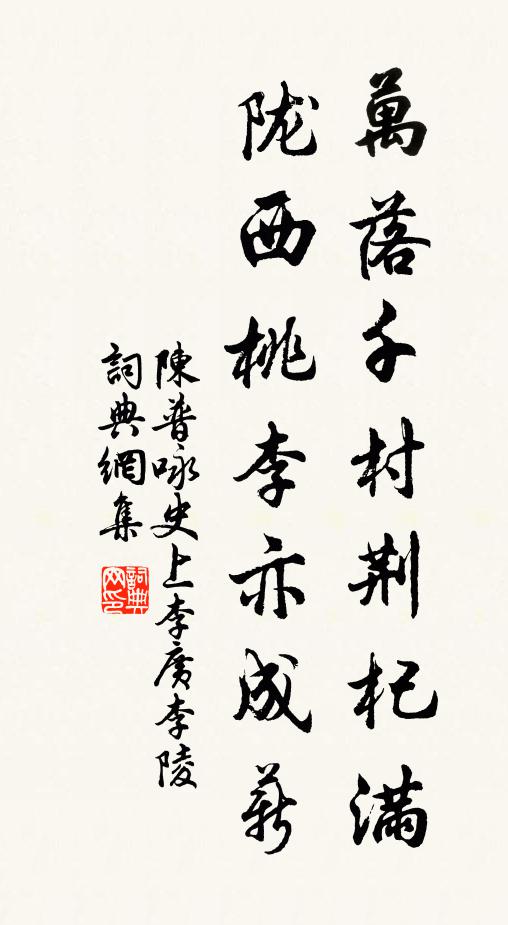 萬落千村荆杞滿
陇西桃李亦成薪
陳普咏史上李廣李陵
詞典網集
詞典网印